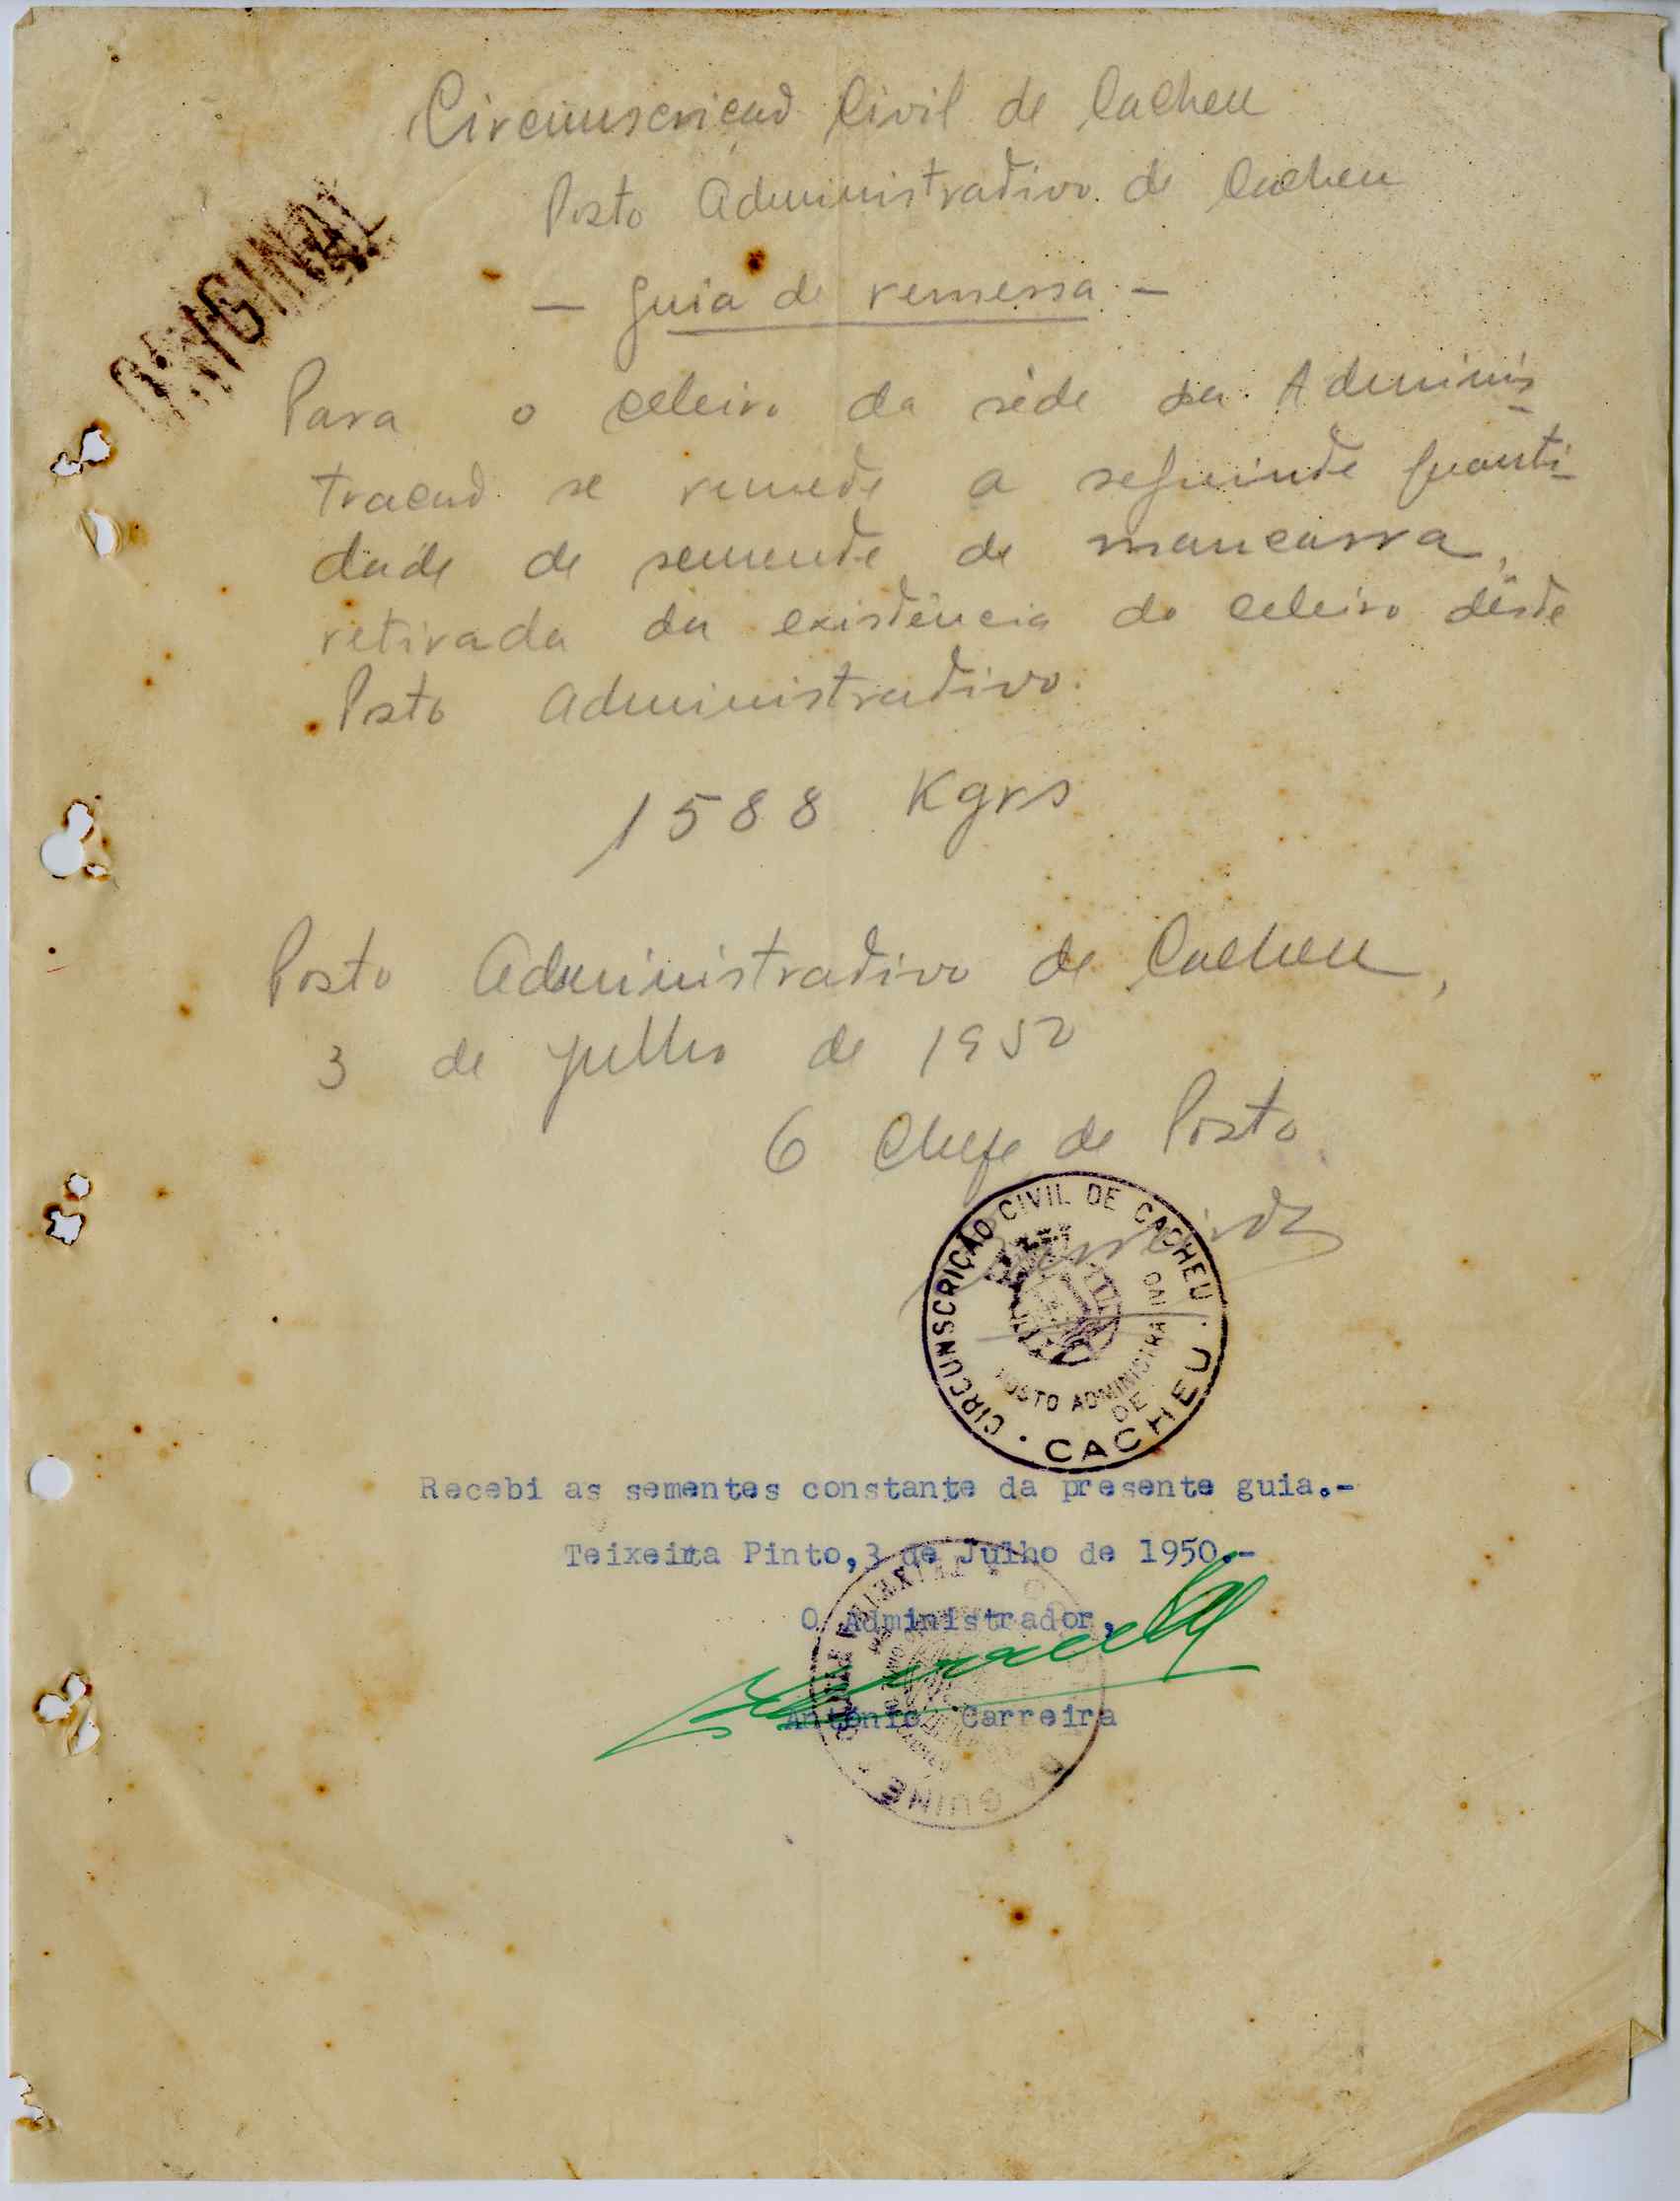 Circunscrição Civil de Cacheu
Posto Administrativo de Cacheu
ORIGINAL
— Guia de remessa —
Para o celeiro da séde da Adminis-
tração se remete a seguinte quanti-
dade de semente de mancarra,
retirada da existência do celeiro dêste
Posto Administrativo.
1588 Kgrs
Posto Administrativo de Cacheu,
3 de julho de 1950
O Chefe de Posto
CIRCUNSCRIÇÃO CIVIL DE CACHEU
POSTO ADMINISTRATIVO
DE
CACHEU
Recebi as sementes constante da presente guia.-
Teixeira Pinto, 3 de Julho de 1950.-
O Administrador,
António Carreira
DA GUINÉ